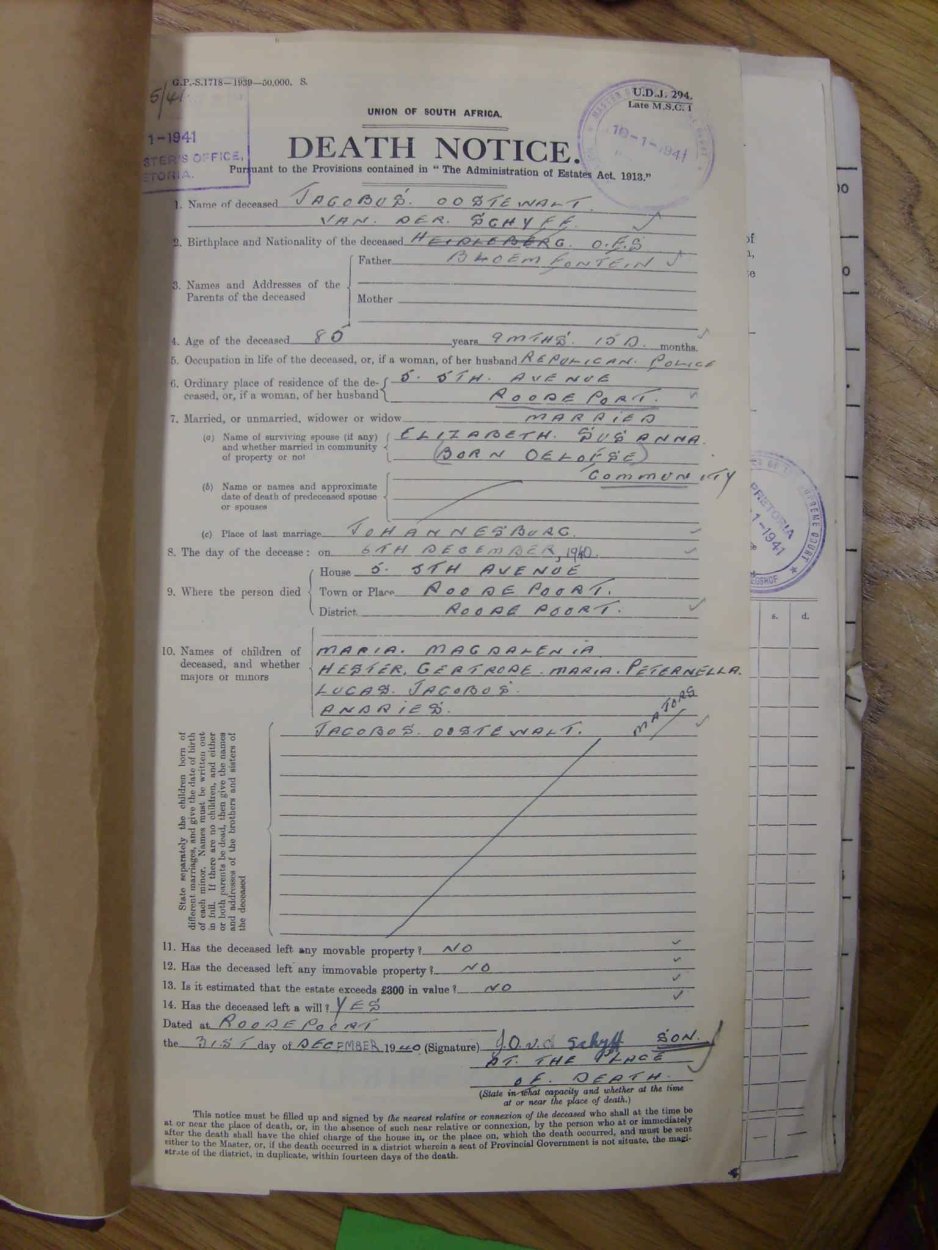 G.P.-S.1718—1939—50,000. S.
U.D.J. 294.
Late M.S.C. 1
5/41
1-1941
STER'S OFFICE,
ETORIA.
18-1-1941
UNION OF SOUTH AFRICA.
DEATH NOTICE.
Pursuant to the Provisions contained in "The Administration of Estates Act. 1913."
1. Name of deceased JACOBUS. OOSTEWALT.
VAN. DER. SCHYFF.
2. Birthplace and Nationality of the deceased HEIDLEBERG. O.F.S
BLOEMFONTEIN
3. Names and Addresses of the Parents of the deceased
Father
Mother
4. Age of the deceased 80 years 9 MTHS. 15 D. months.
5. Occupation in life of the deceased, or, if a woman, of her husband REPUPLICAN. POLICE
6. Ordinary place of residence of the de-
ceased, or, if a woman, of her husband
5. 5TH. AVENUE
ROODEPORT.
7. Married, or unmarried, widower or widow MARRIED
(a) Name of surviving spouse (if any)
and whether married in community
of property or not
ELIZABETH. SUSANNA.
(BORN OELOFSE)
COMMUNITY
(b) Name or names and approximate
date of death of predeceased spouse
or spouses
(c) Place of last marriage JOHANNESBURG.
8. The day of the decease: on 6TH DECEMBER, 1940.
9. Where the person died
House 5. 5TH AVENUE
Town or Place ROODEPOORT.
District ROODEPOORT.
10. Names of children of
deceased, and whether
majors or minors
MARIA. MAGDALENIA
HESTER. GERTRUDE. MARIA. PETERNELLA.
LUCAS. JACOBUS.
ANDRIES.
JACOBUS. OOSTEWALT.
MAJORS
State separately the children born of
different marriages, and give the date of birth
of each minor. Names must be written out
in full. If there are no children, and either
or both parents be dead, then give the names
and addresses of the brothers and sisters of
the deceased
11. Has the deceased left any movable property? NO
12. Has the deceased left any immovable property? NO
13. Is it estimated that the estate exceeds £300 in value? NO
14. Has the deceased left a will? YES
Dated at ROODEPOORT
the 31ST day of DECEMBER 1940 (Signature) J.O.v.d Schyff SON.
AT THE PLACE
OF. DEATH.
(State in what capacity and whether at the time
at or near the place of death.)
This notice must be filled up and signed by the nearest relative or connexion of the deceased who shall at the time be
at or near the place of death, or, in the absence of such near relative or connexion, by the person who at or immediately
after the death shall have the chief charge of the house in, or the place on, which the death occurred, and must be sent
either to the Master, or, if the death occurred in a district wherein a seat of Provincial Government is not situate, the magi-
strate of the district, in duplicate, within fourteen days of the death.
PRETORIA
1-1941
SUPREME COURT
s. d.